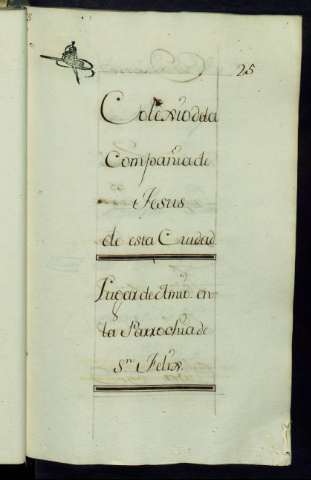 25
Colexio de la
Compañia de
Jesus
de esta Ciudad
Lugar de en
la Parrochia de
Sn Felix